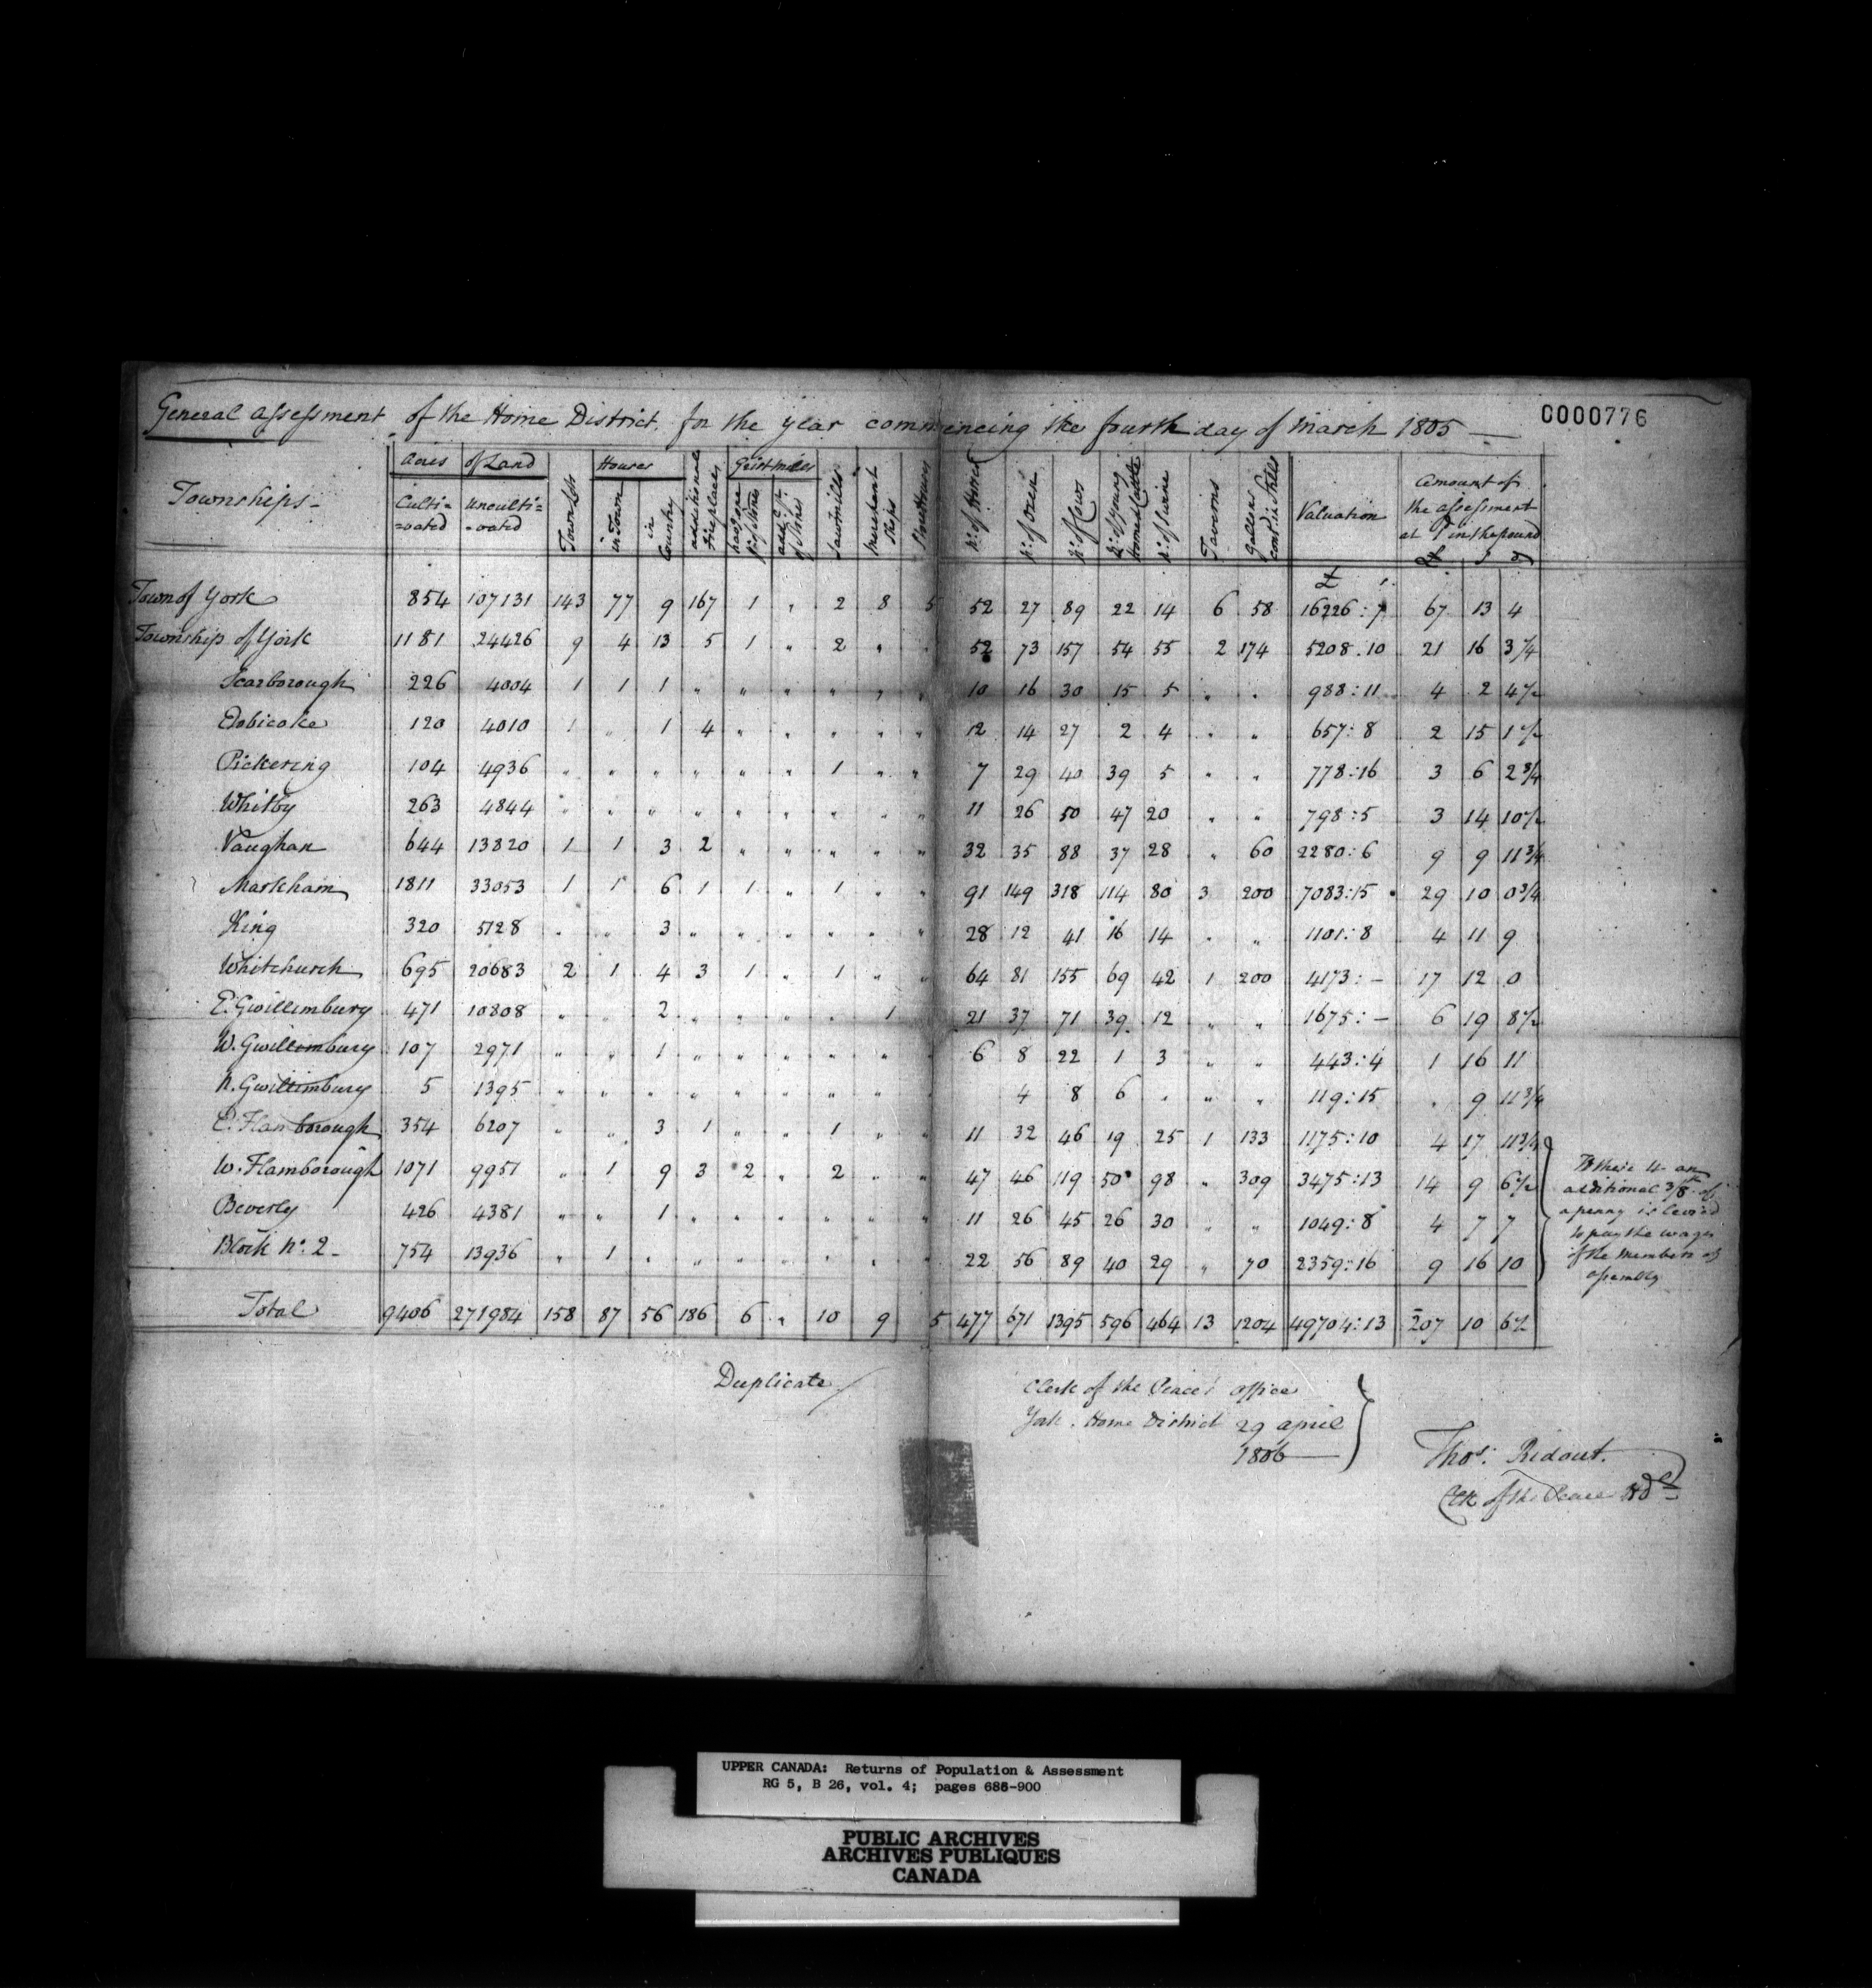 General Assessment of the Home District for the year commencing the fourth day of March 1805
0000776
Townships
Acres of Land
Culti=vated
Unculti=vated
Town Lots
Houses
in Town
in Country
additional Fireplaces
Grist mills
Sawmills
Merchant Shops
No. of Horses
No. of Oxen
No. of Cows
No. of Young Horned Cattle
No. of Swine
Taverns
Gallons cont. in Stills
Valuation
Amount of the assessment at 1d in the pound
£ s d
£ s
Town of York 854 107131 143 77 9 167 1 " 2 8 5 52 27 89 22 14 6 58 16226:7 67 13 4
Township of York 1181 24426 9 4 13 5 1 " 2 " " 52 73 157 54 55 2 174 5208.10 21 16 3 1/4
Scarborough 226 4004 1 1 1 " " " " " " 10 16 30 15 5 " " 988:11 4 2 4 1/2
Etobicoke 120 4010 1 " 1 4 " " " " " 12 14 27 2 4 " " 657:8 2 15 1 1/2
Pickering 104 4936 " " " " " " 1 " " 7 29 40 39 5 " " 778:16 3 6 2 3/4
Whitby 263 4844 " " " " " " " " " 11 26 50 47 20 " " 798:5 3 14 10 1/2
Vaughan 644 13820 1 1 3 2 " " " " " 32 35 88 37 28 " 60 2280:6 9 9 11 3/4
Markham 1811 33053 1 1 6 1 1 " 1 " " 91 149 318 114 80 3 200 7083:15 29 10 0 3/4
King 320 5128 " " 3 " " " " " " 28 12 41 16 14 " " 1101:8 4 11 9
Whitchurch 695 20683 2 1 4 3 1 " 1 " " 64 81 155 69 42 1 200 4173:- 17 12 0
E. Gwillimbury 471 10808 " " 2 " " " " 1 21 37 71 39 12 " " 1675:- 6 19 8 1/2
W. Gwillimbury 107 2971 " " 1 " " " " " " 6 8 22 1 3 " " 443:4 1 16 11
N. Gwillimbury 5 1395 " " " " " " " " 4 8 6 " " " 119:15 " 9 11 3/4
E. Flamborough 354 6207 " " 3 1 " " 1 " " 11 32 46 19 25 1 133 1175:10 4 17 11 3/4
W. Flamborough 1071 9951 " 1 9 3 2 " 2 " " 47 46 119 50 98 " 309 3475:13 14 9 6 1/2
Beverly 426 4381 " " 1 " " " " " " 11 26 45 26 30 " " 1049:8 4 7 7
Block No. 2 - 754 13936 " 1 " " " " " " " 22 56 89 40 29 " 70 2359:16 9 16 10
Total 9406 271984 158 87 56 186 6 " 10 9 5 477 671 1395 596 464 13 1204 49704:13 207 10 6 1/2
To these 4 an
additional 3/8th of
a penny is levied
to pay the wages
of the members of
assembly
Duplicate
Clerk of the Peace's office
York. Home District 29 april
1806
Thos. Ridout.
Clk of the Peace H.D.
UPPER CANADA: Returns of Population & Assessment
RG 5, B 26, vol. 4; pages 688-900
PUBLIC ARCHIVES
ARCHIVES PUBLIQUES
CANADA